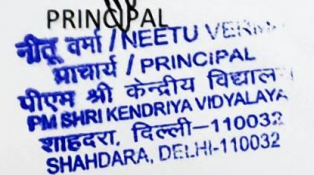 PRINCIPAL
नीतू वर्मा / NEETU VERMA
प्राचार्य / PRINCIPAL
पीएम श्री केन्द्रीय विद्यालय
PM SHRI KENDRIYA VIDYALAYA
शाहदरा, दिल्ली-110032
SHAHDARA, DELHI-110032